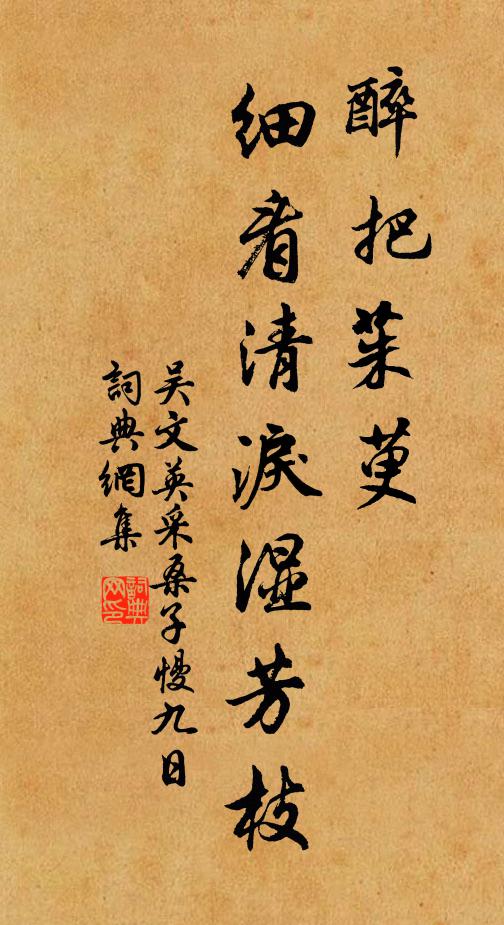 醉把茱萸
细看清淚湿芳枝
吴文英采桑子慢九日
詞典網集
詞典网印